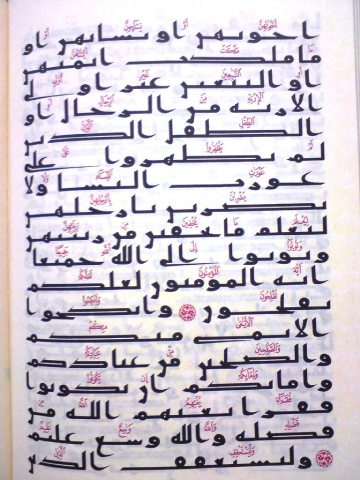 اخوتهن او نسائهن او
ما ملكت ايمنهن
او التبعين غير اولي
الاربة من الرجال او
الطفل الذين
لم يظهروا على
عورت النسا ولا
يضربن بارجلهن
ليعلم ما يخفين من زينتهن
وتوبوا الى الله جميعا
ايه المومنون لعلكم
تفلحون وانكحوا
الايمى منكم
والصلحين من عبادكم
وامايكم ان يكونوا
فقرا يغنهم الله من
فضله والله وسع عليم
وليستعفف الذين